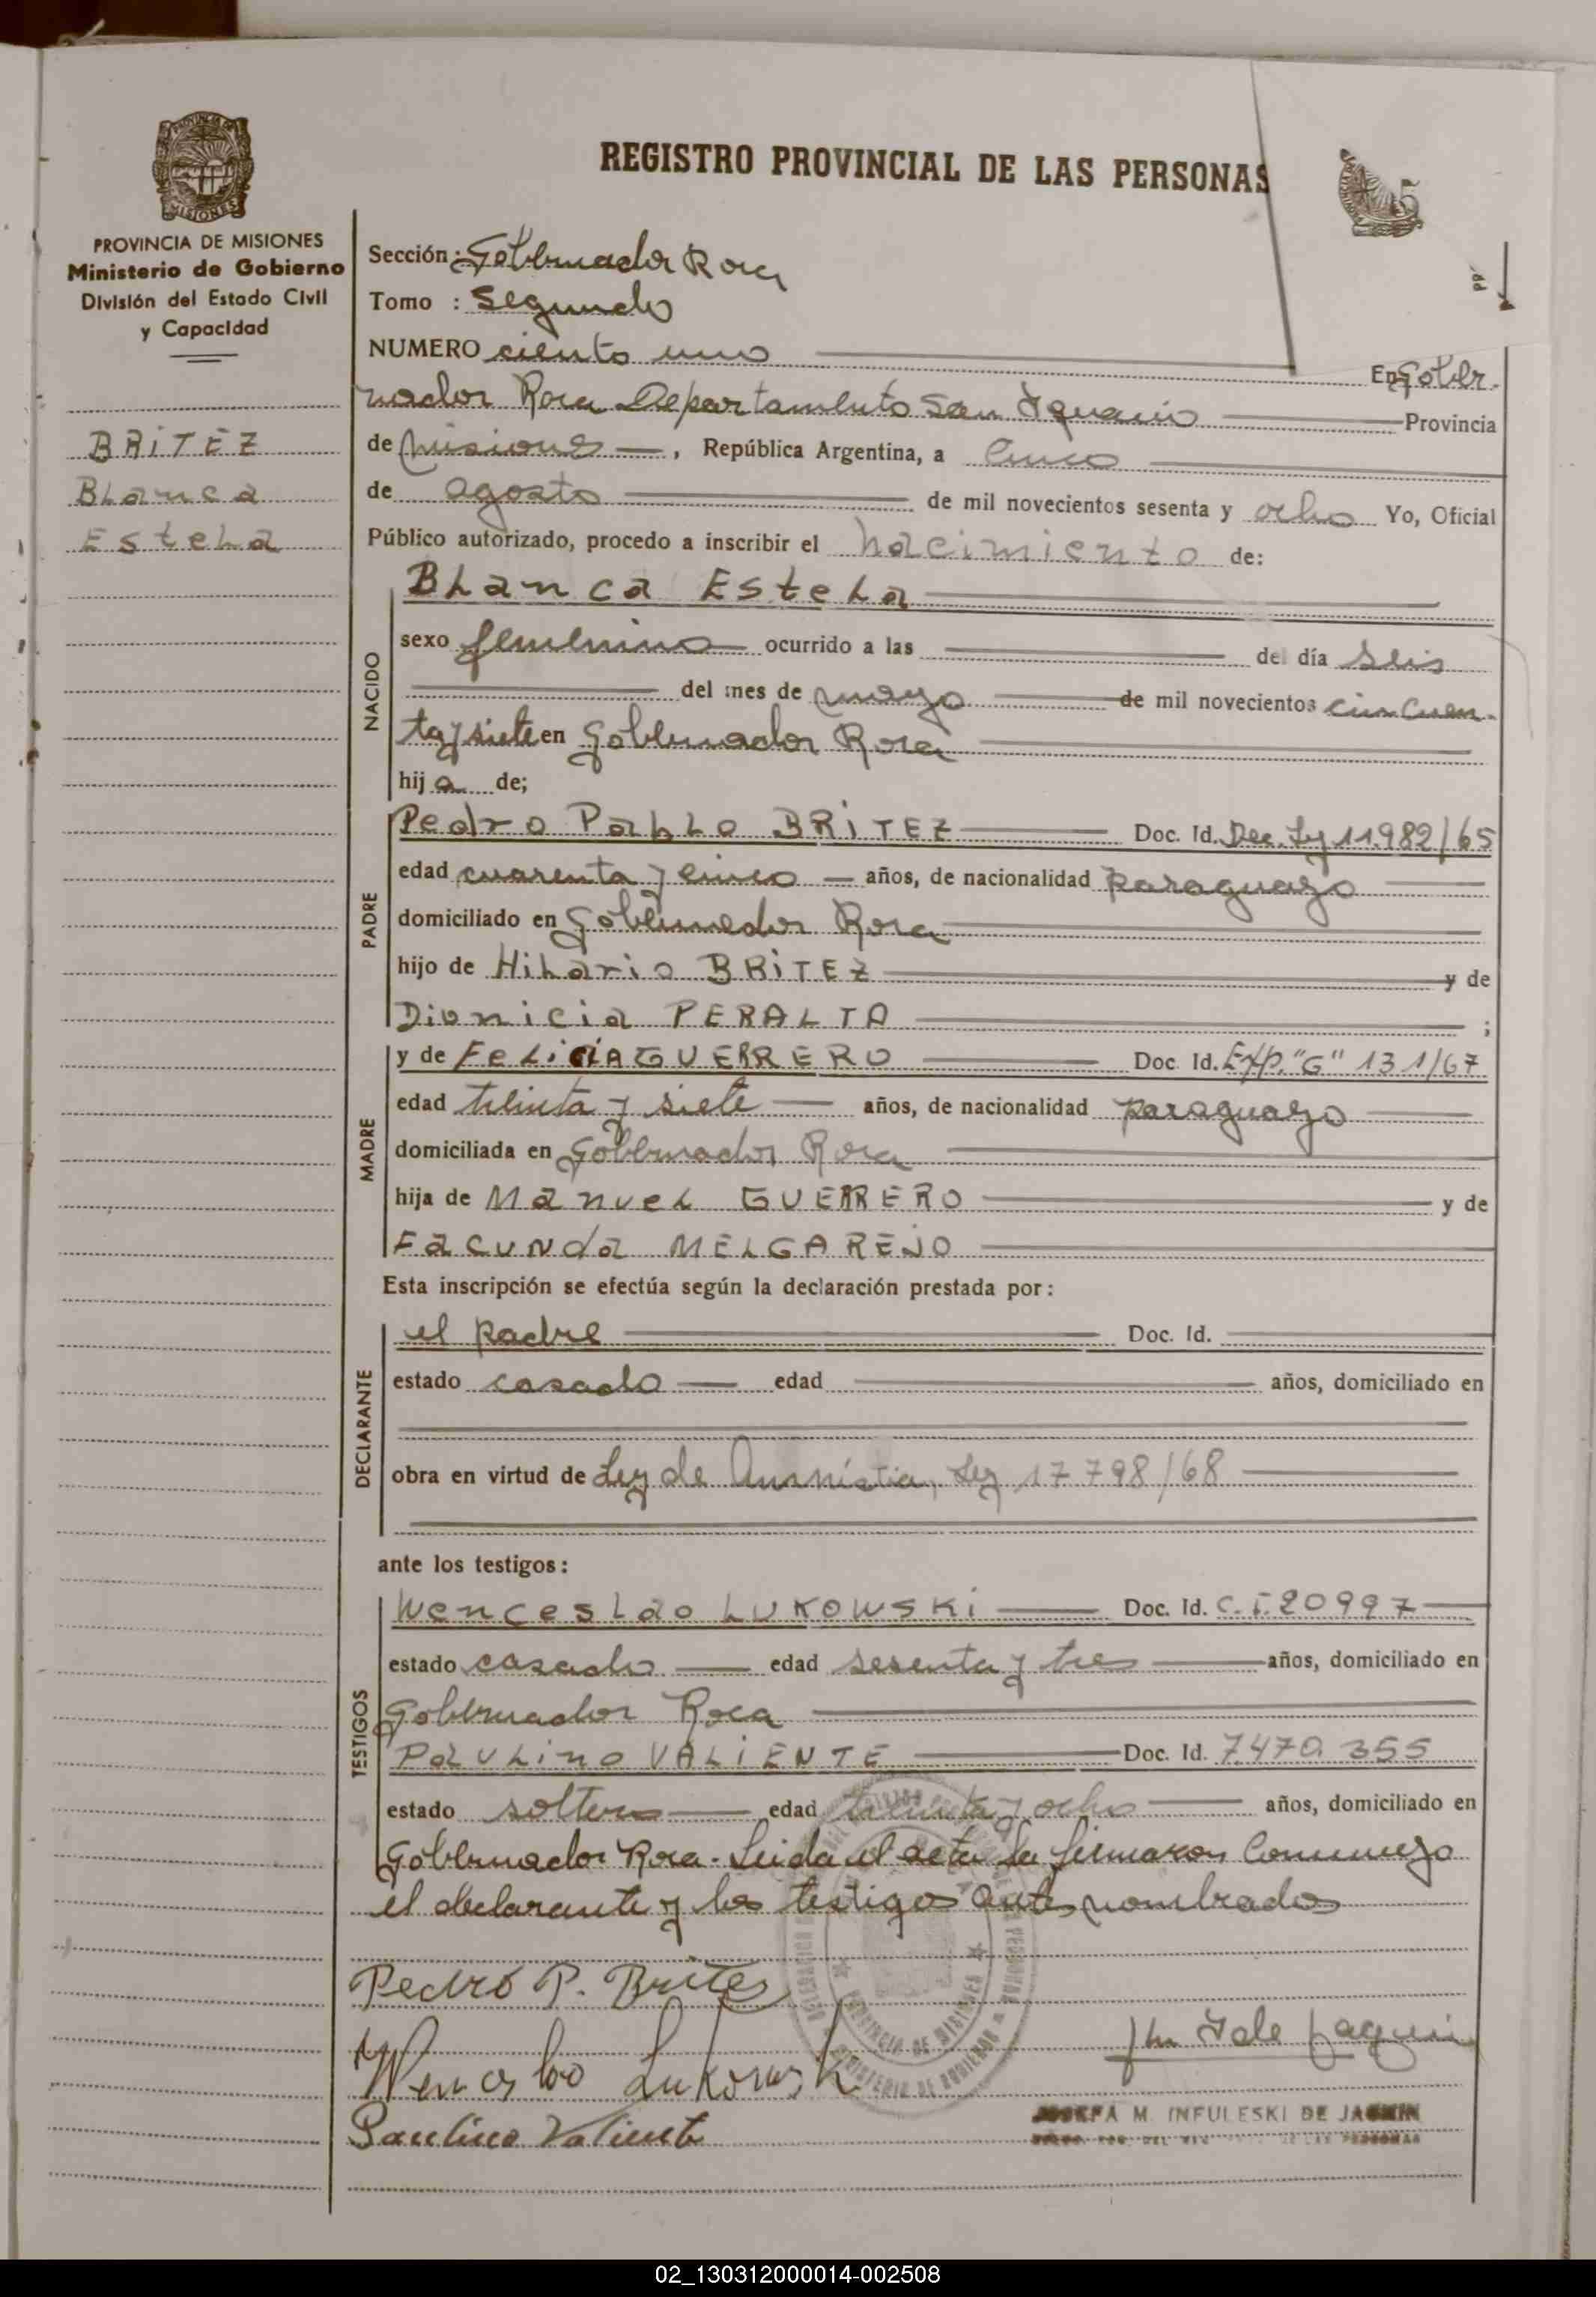 REGISTRO PROVINCIAL DE LAS PERSONAS
PROVINCIA DE MISIONES
Ministerio de Gobierno
División del Estado Civil
y Capacidad
BRITEZ
Blanca
Estela
Sección: Gobernador Roca
Tomo : Segundo
NUMERO ciento uno
En Gober-
nador Roca Departamento San Ignacio Provincia
de Misiones, República Argentina, a Cinco
de agosto de mil novecientos sesenta y ocho Yo, Oficial
Público autorizado, procedo a inscribir el nacimiento de:
NACIDO
Blanca Estela
sexo femenino ocurrido a las del día seis
del mes de mayo de mil novecientos cincuen-
ta y siete en Gobernador Roca
hija de;
PADRE
Pedro Pablo BRITEZ Doc. Id. Dec. Ley 11.982/65
edad cuarenta y cinco años, de nacionalidad paraguayo
domiciliado en Gobernador Roca
hijo de Hilario BRITEZ y de
Dionicia PERALTA ;
MADRE
y de Felicia GUERRERO Doc. Id. Exp. "G" 131/67
edad treinta y siete años, de nacionalidad paraguayo
domiciliada en Gobernador Roca
hija de Manuel GUERRERO y de
Facunda MELGAREJO
Esta inscripción se efectúa según la declaración prestada por:
DECLARANTE
el padre Doc. Id.
estado casado edad años, domiciliado en
obra en virtud de Ley de Amnistia, Ley 17798/68
ante los testigos:
TESTIGOS
Wenceslao LUKOWSKI Doc. Id. C.I. 20997
estado casado edad sesenta y tres años, domiciliado en
Gobernador Roca
Paulino VALIENTE Doc. Id. 7.470.355
estado soltero edad treinta y ocho años, domiciliado en
Gobernador Roca. Leida el acta la firmaron Conmigo
el declarante y los testigos antes nombrados
Pedro P. Brites
Wenceslao Lukowski
Paulino Valiente
JOSEFA M. INFULESKI DE JAGMIN
02_130312000014-002508